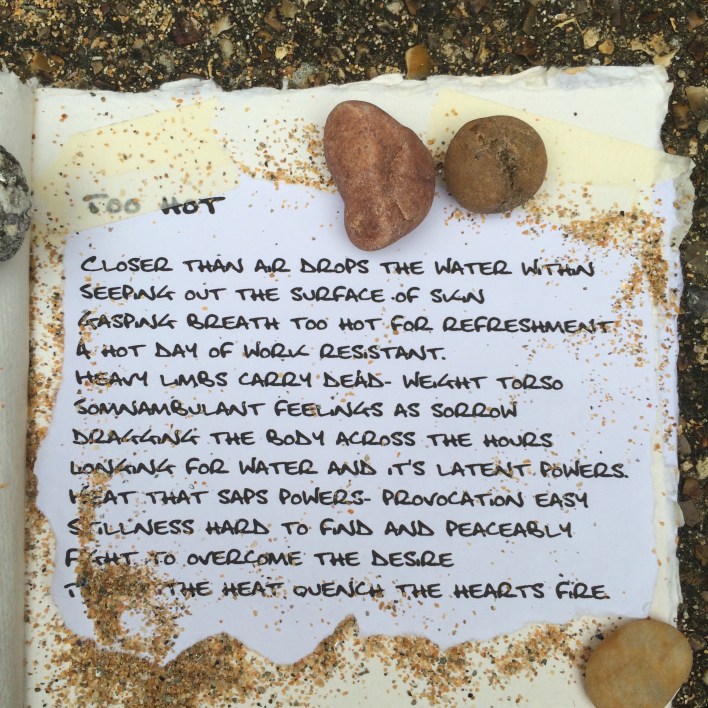 TOO HOT
CLOSER THAN AIR DROPS THE WATER WITHIN
SEEPING OUT THE SURFACE OF SKIN
GASPING BREATH TOO HOT FOR REFRESHMENT
A HOT DAY OF WORK RESISTANT.
HEAVY LIMBS CARRY DEAD-WEIGHT TORSO
SOMNAMBULANT FEELINGS AS SORROW
DRAGGING THE BODY ACROSS THE HOURS
LONGING FOR WATER AND IT'S LATENT POWERS.
HEAT THAT SAPS POWERS- PROVOCATION EASY
STILLNESS HARD TO FIND AND PEACEABLY
FIGHT TO OVERCOME THE DESIRE
THE HEAT QUENCH THE HEARTS FIRE.